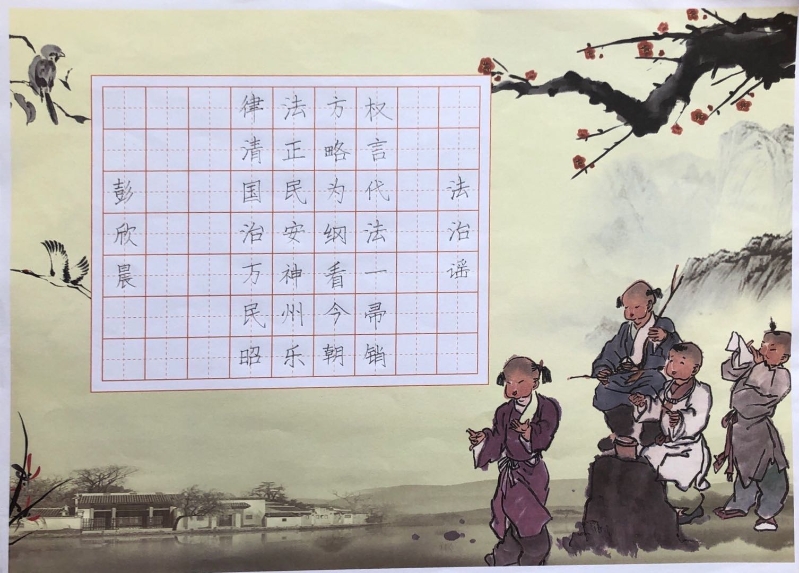 法治谣
权言代法一帚销
方略为纲看今朝
法正民安神州乐
律清国治万民昭
彭欣晨